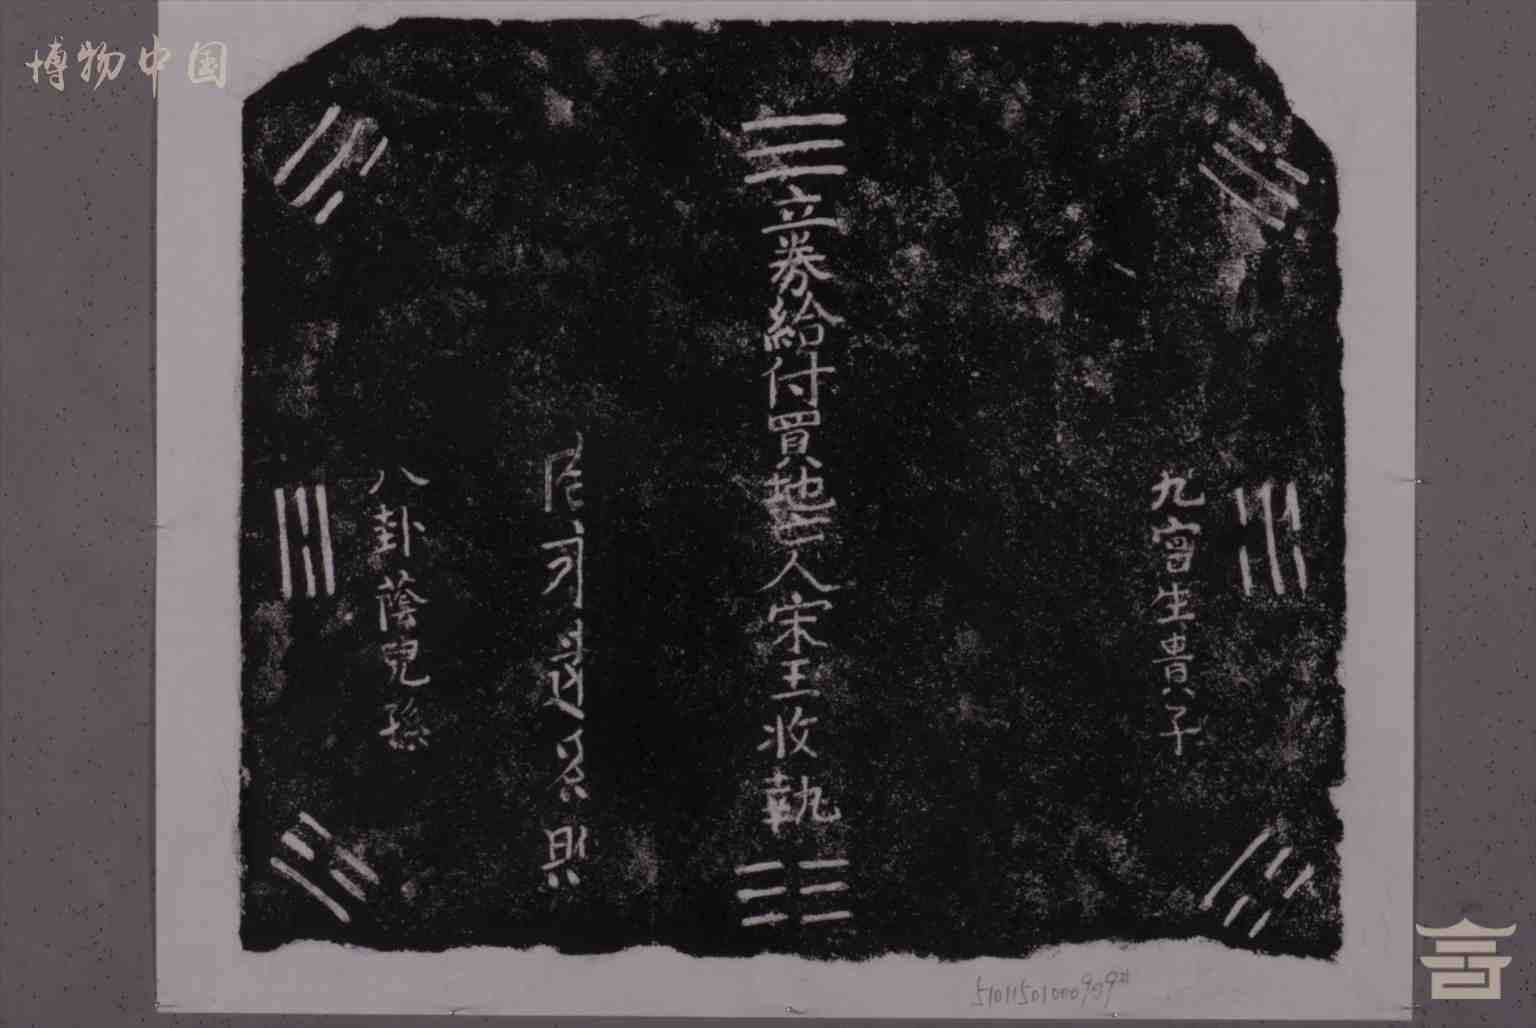 博物中国
九宮生貴子
立券給付買地亡人宋王收執
八卦蔭兒孫
51011501000909